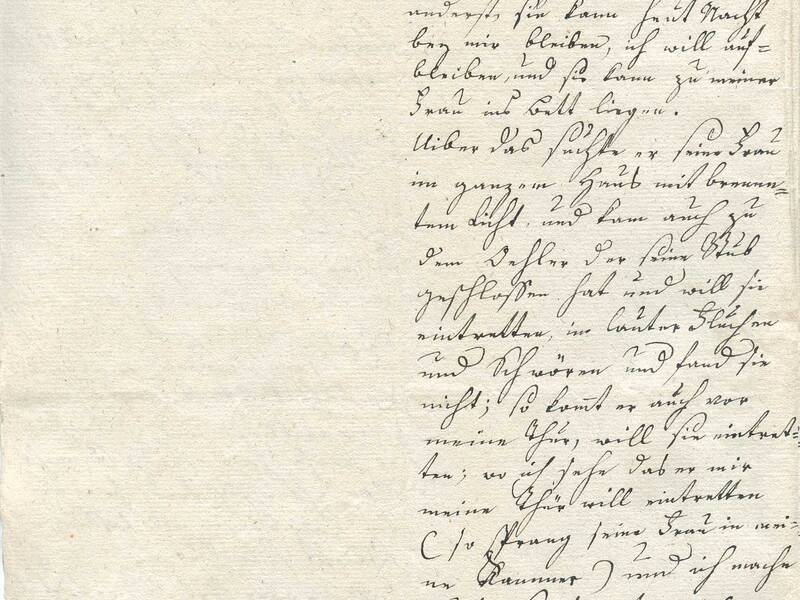 anderst, sie kann heut Nacht
bey mir bleiben, ich will auf=
bleiben, und sie kann zu meiner
Frau ins Bett liegen.
Uiber das suchte er seine Frau
im ganzem Haus mit brenen=
tem Licht, und kam auch zu
dem Oehler der seine Stub
geschlossen hat und will sie
eintretten, in lauter Fluchen
und Schwören und fand sie
nicht; so kommt er auch vor
meine Thür, will sie eintret=
ten; wo ich sehe das er mir
meine Thür will eintretten
( so sprang seine Frau in mei=
ne Kammer ) und ich mache